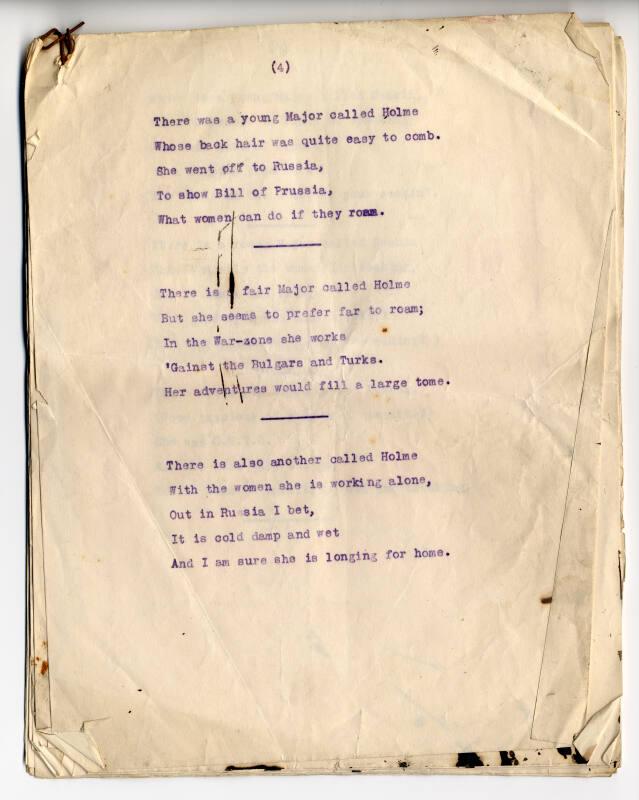 (4)
There was a young Major called Holme
Whose back hair was quite easy to comb.
She went off to Russia,
To show Bill of Prussia,
What women can do if they roam.
There is a fair Major called Holme
But she seems to prefer far to roam;
In the War-zone she works
'Gainst the Bulgars and Turks.
Her adventures would fill a large tome.
There is also another called Holme
With the women she is working alone,
Out in Russia I bet,
It is cold damp and wet
And I am sure she is longing for home.